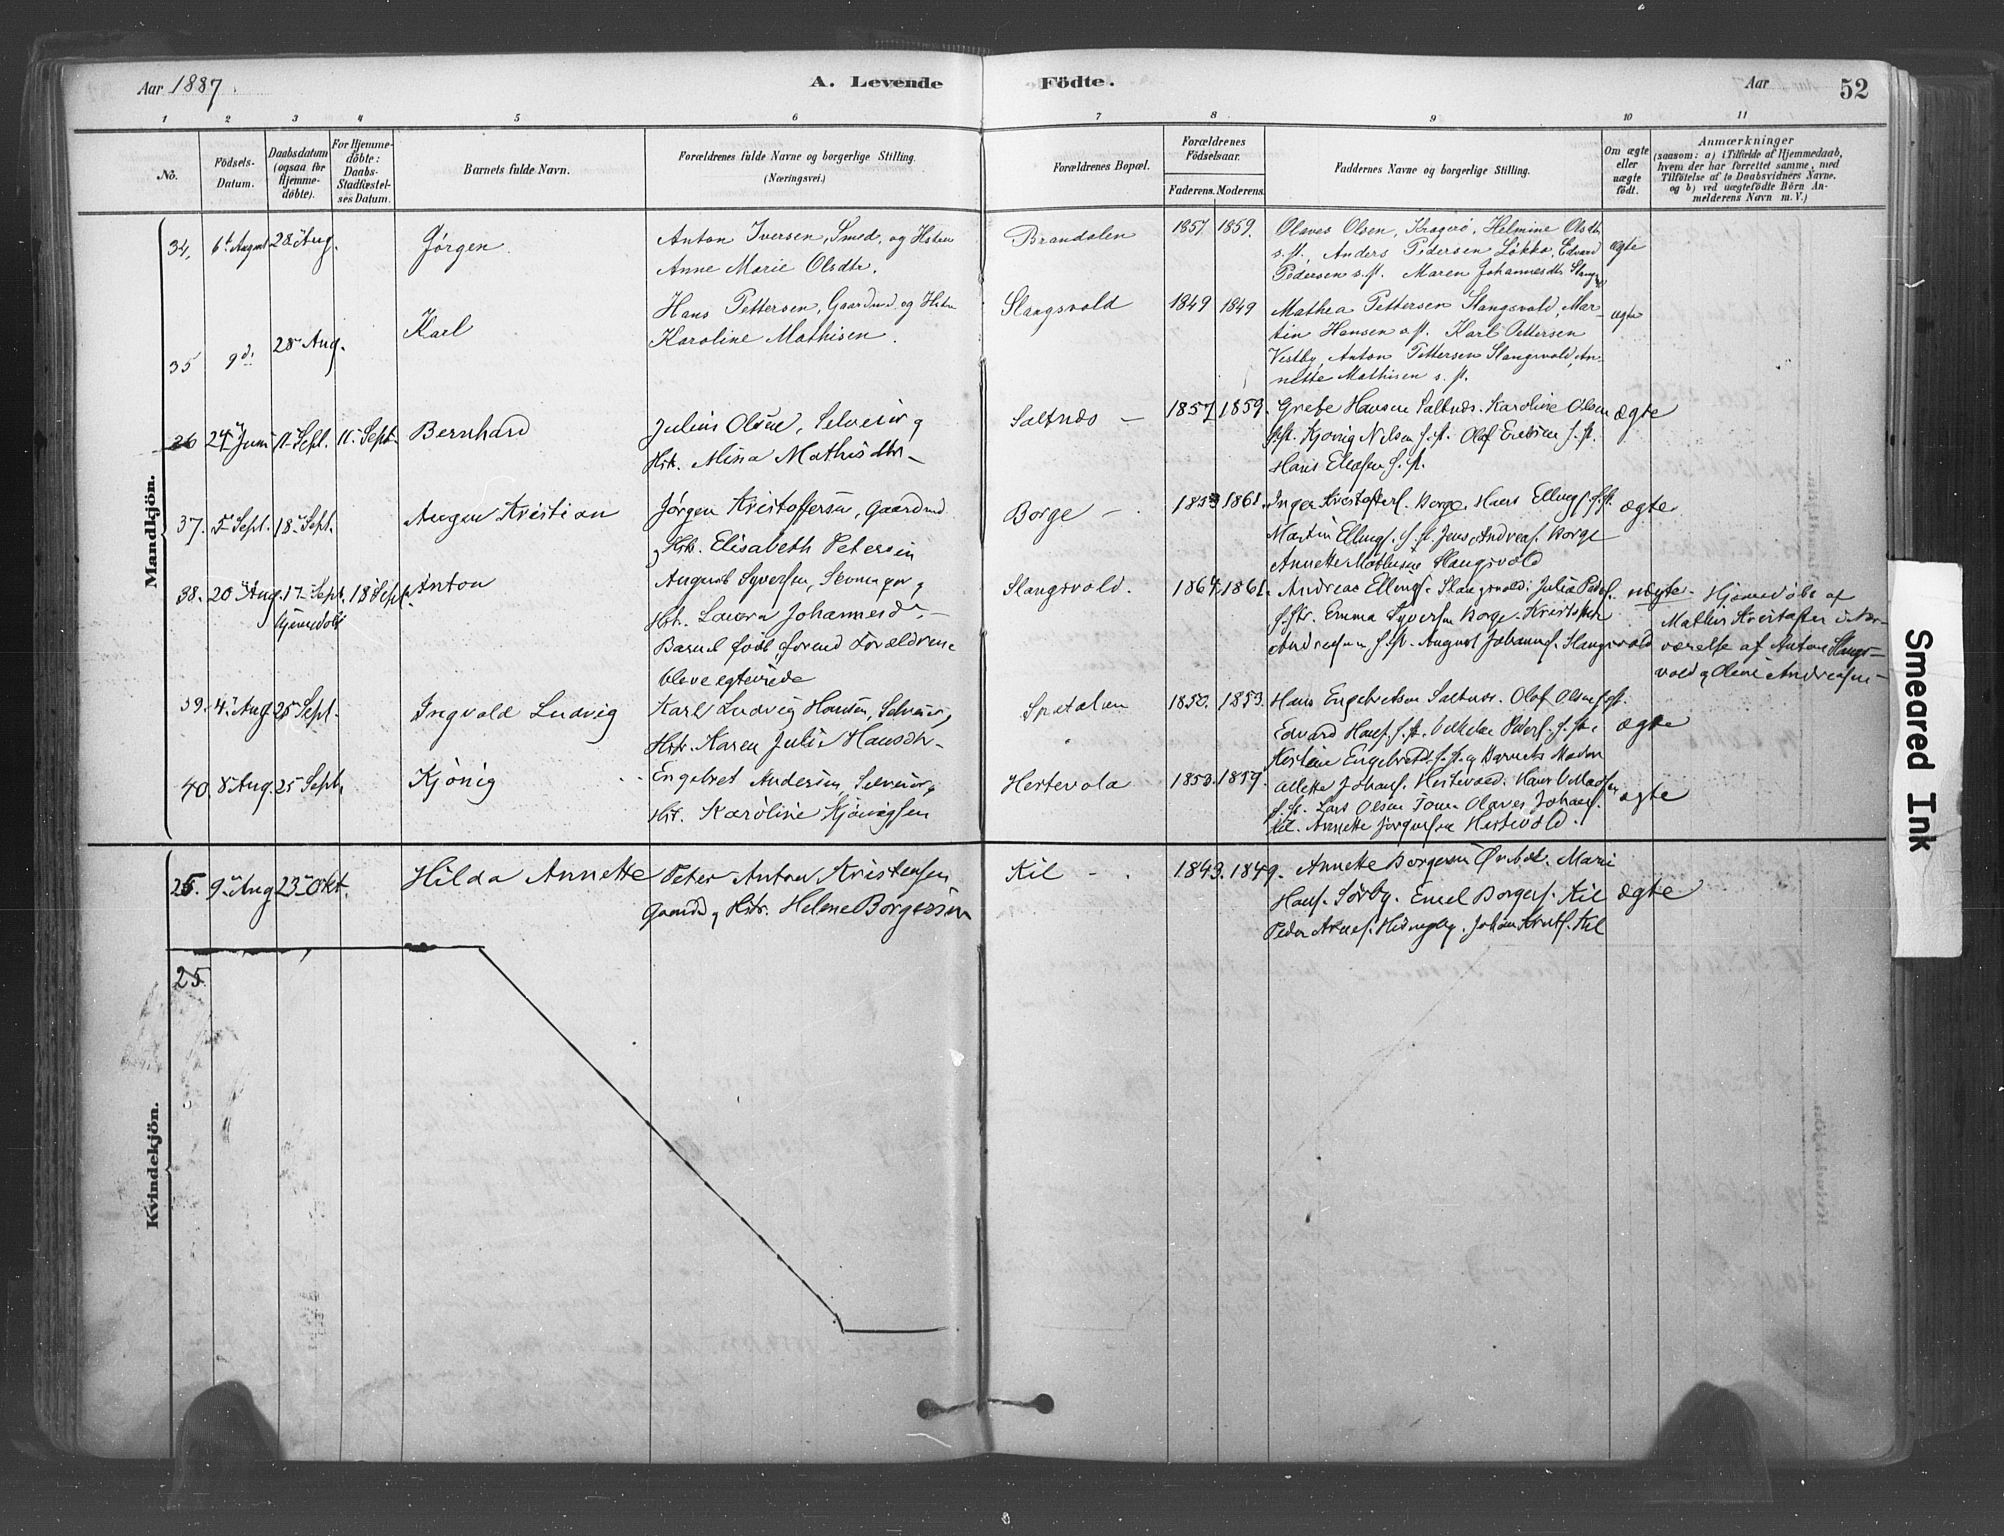 Aar 1887
A. Levende Födte.
Aar 52
1 2 3 4 5 6 7 8 9 10 11
No.
Födsels-
Datum.
Daabsdatum
(ogsaa for
Hjemme-
døbte).
For Hjemme-
døbte:
Daabs-
Stadfæstel-
ses Datum.
Barnets fulde Navn.
Forældrenes fulde Navne og borgerlige Stilling.
(Næringsvei.)
Forældrenes Bopæl.
Forældrenes
Födselsaar.
Faderens. Moderens.
Faddernes Navne og borgerlige Stilling.
Om ægte
eller
uægte
født.
Anmærkninger
(saasom: a) i Tilfælde af Hjemmedaab,
hvem der har forrettet samme, med
Tilføielse af to Daabsvidners Navne,
og b) ved uægtefödte Börn An-
melderens Navn m. V.)
Mandkjön.
34, 6te August 28 Aug. Jørgen.
Anton Iversen, Smed, og Hstru
Anne Marie Olsdtr.
Brandalen 1857 1859.
Olaves Olsen, Kragerø, Helmine Olsdtr
s. st. Anders Pedersen Løkka, Edvard
Pedersen s. st. Maren Johannesdtr
ægte
35 9d. 28 Aug. Karl
Hans Pettersen, Gaardmd. og Hstru
Karoline Mathisen.
Slangsvold 1849 1849
Mathea Pettersen Slangsvold, Mar-
tin Hansen s. st. Karl Pettersen
Vestby, Anton Pettersen Slangsvold, An-
nette Mathisen s. st.
ægte
36 24 Juni 11 Sept. 11 Sept. Bernhard
Julius Olsen, Selveier og
Hst. Mina Mathisdtr
Saltnes 1857 1859.
Grete Hansen Saltnes. Karoline Olsen
s. st. Kjønig Nilsen s. st. Olaf
Hans s. st.
ægte
37. 5 Sept. 18 Sept. Kristian
Jørgen Kristoffersen, Gaardmd.
og Hst. Elisabeth Petersen
Borge 1853 1861.
Inger Kristoffers. Borge. Hans Ellings. s. st.
Martin Ellings. s. st. Jens Andreas. Borge
Annette Mathisen Slangsvold
ægte
38. 20 Aug. 17 Sept. 18 Sept. Anton
hjemedøbt
August Syversen, og
Hst. Laura Johannesdr
Barnet født forend Forældrene
bleve egteviede
Slangsvold. 1864. 1861.
Andreas Ellings. Slangsvold. Julia Peders.
s. st. Emma Syversen Borge. Kristoffer
Andresen s. st. August Johans. Slangsvold
uægte
Hjemedøbt af
Mathis Kristoffer i Nær-
værelse af Anton Slangs-
vold og Oline Andresen
39. 4. Aug 25 Sept. Ingvald Ludvig
Karl Ludvig Hansen, Selveier,
Hst. Karen Julie Hansdtr.
Spetalen 1850. 1853.
Hans Engebretsen Saltnes. Olaf Olsen s. st.
Edvard Hans. s. st. Peders. s. st.
Engebretsd. s. st. og Barnets Moder
ægte
40 8 Aug. 25 Sept. Kjönig
Engebret Andersen, Selveier,
Hst. Karoline Kjönigsen
Hestevold 1853. 1859.
Johans. Hestevold. Hans
s. st. Lars Olsen Tom. Olaves Johans.
Annette Jørgensen Hestevold.
ægte
Kvindekjön.
25. 9 Aug 23 Okt. Hilda Annette
Peter Anton Kristensen
Gaardmd og Hstr. Helene Borgersen
Kil 1843. 1849.
Annette Borgersen Marie
Hans. Sørby. Emil Borgers. Kil
Peder Johan Knuts. Kil
ægte
25.
Smeared Ink